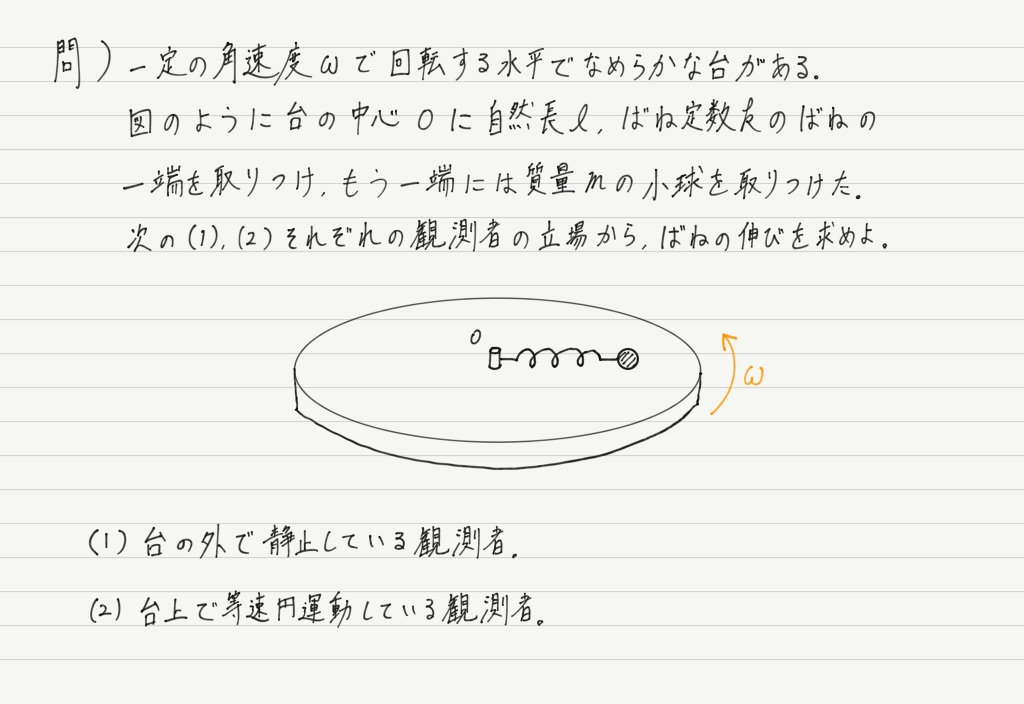 問) 一定の角速度ωで回転する水平でなめらかな台がある.
図のように台の中心Oに自然長l, ばね定数kのばねの
一端を取りつけ, もう一端には質量mの小球を取りつけた.
次の(1),(2)それぞれの観測者の立場から, ばねの伸びを求めよ.
O
ω
(1) 台の外で静止している観測者.
(2) 台上で等速円運動している観測者.